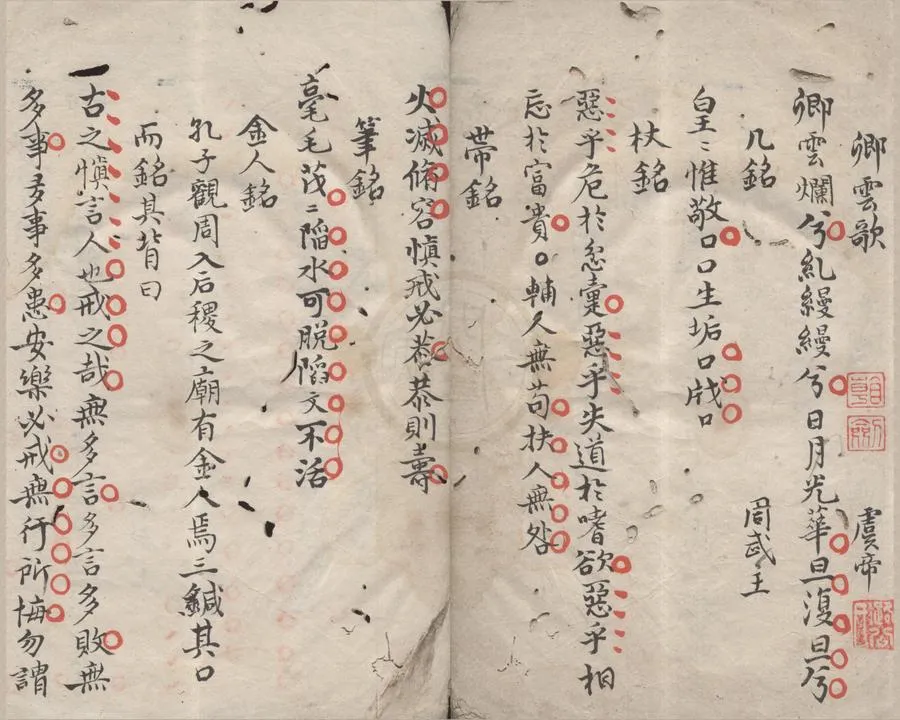 卿雲歌 虞帝
卿雲爛兮糺縵縵兮日月光華旦復旦兮
几銘 周武王
皇〻惟敬口口生垢口戕口
杖銘
惡乎危於忿疐惡乎失道於嗜欲惡乎相
忘於富貴○輔人無苟扶人無咎
帶銘
火滅脩容慎戒必恭恭則壽
筆銘
毫毛茂〻陷水可脫陷文不活
金人銘
孔子觀周入后稷之廟有金人焉三鍼其口
而銘其背曰
古之慎言人也戒之哉無多言多言多敗無
多事多事多患安樂必戒無行所悔勿謂